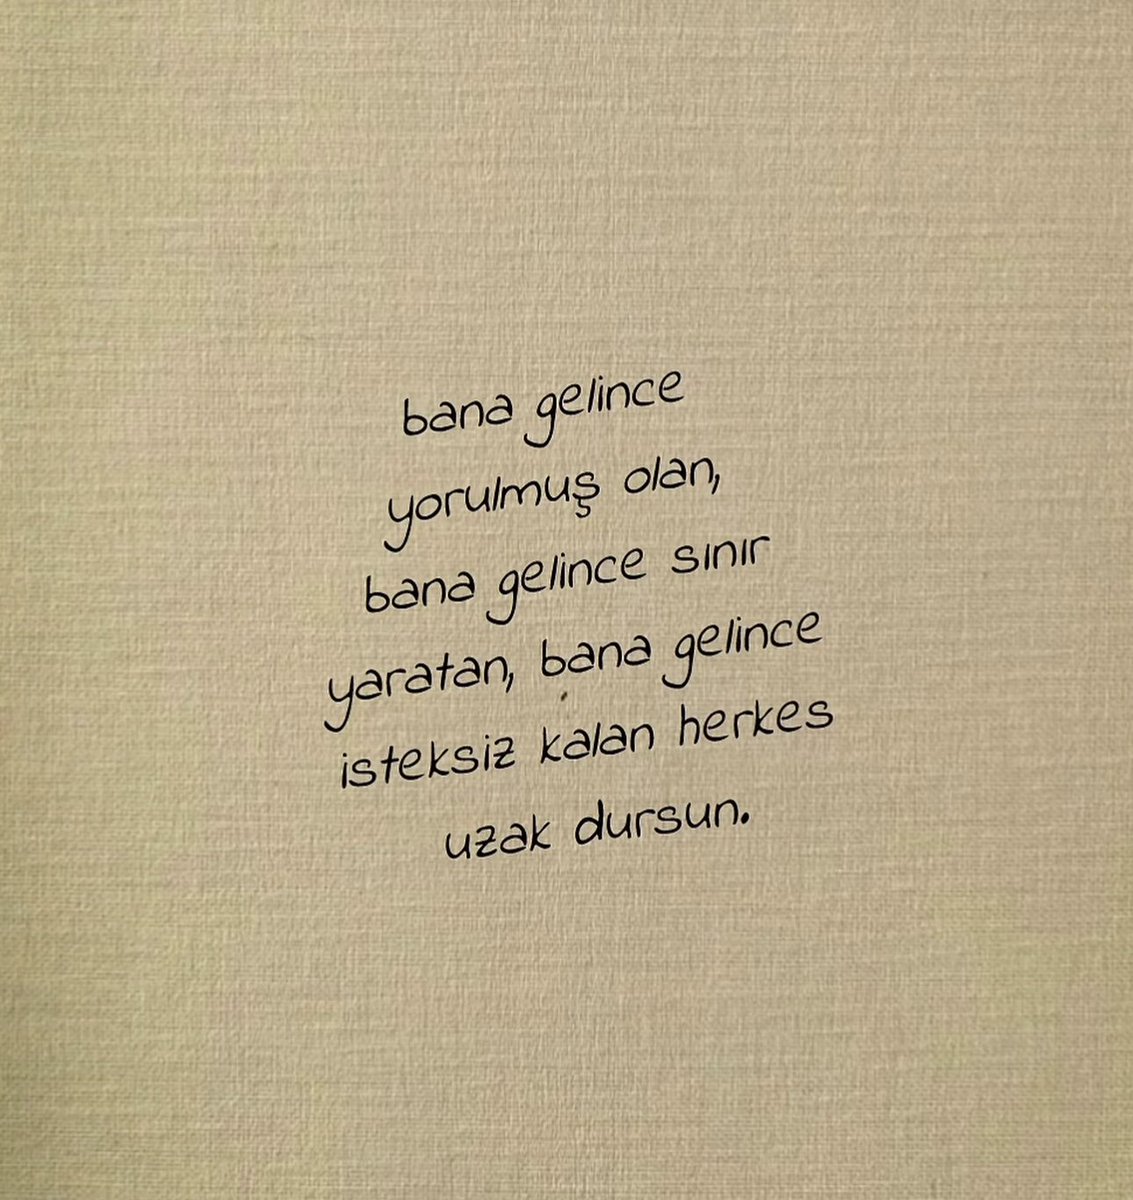 bana gelince
yorulmuş olan,
bana gelince sınır
yaratan, bana gelince
isteksiz kalan herkes
uzak dursun.